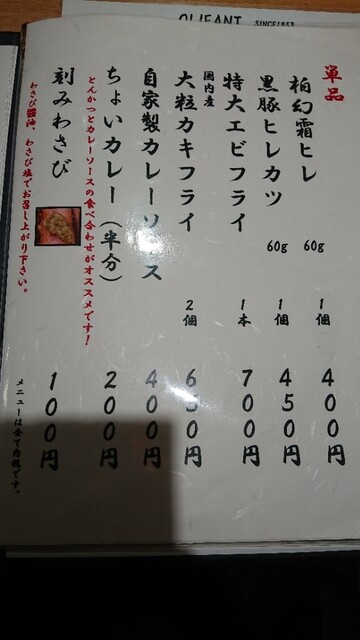 OLIFANT SINCE1953
単品
柏幻霜ヒレ 60g 1個 400円
黒豚ヒレカツ 60g 1個 450円
特大エビフライ 1本 700円
国内産
大粒カキフライ 2個 650円
自家製カレーソース 400円
ちょいカレー(半分) 200円
とんかつとカレーソースの食べ合わせがオススメです!
刻みわさび 100円
わさび醤油、わさび塩でお召し上がり下さい。
メニューは全て内税です。